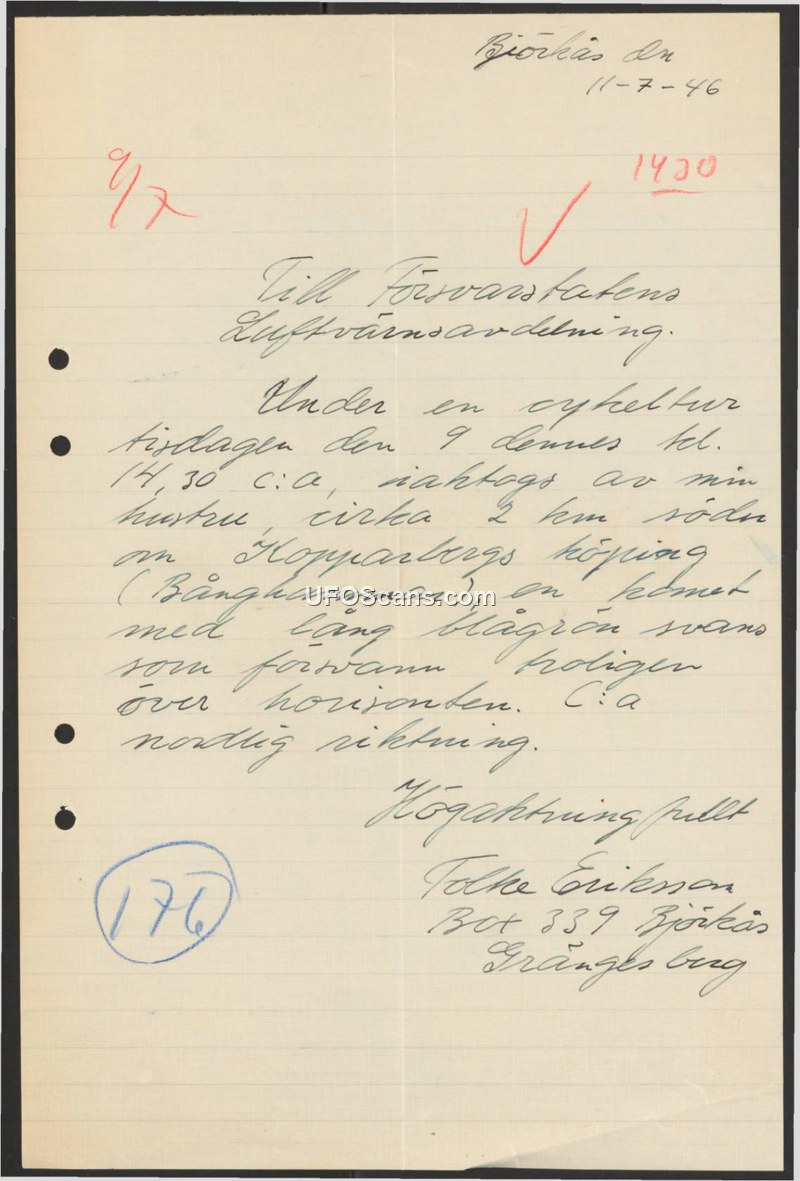 Björkås den
11-7-46
9/7
1430
Till Försvarstatens
Luftvärnsavdelning.
Under en cykeltur
tisdagen den 9 dennes kl.
14,30 c:a, iakttogs av min
hustru, cirka 2 km söder
om Kopparbergs köping
en komet
UFOScans.com
med lång blågrön svans
som försvann troligen
över horisonten. C:a
nordlig riktning.
Högaktningsfullt
Folke Eriksson
Box 339 Björkås
Grängesberg
176